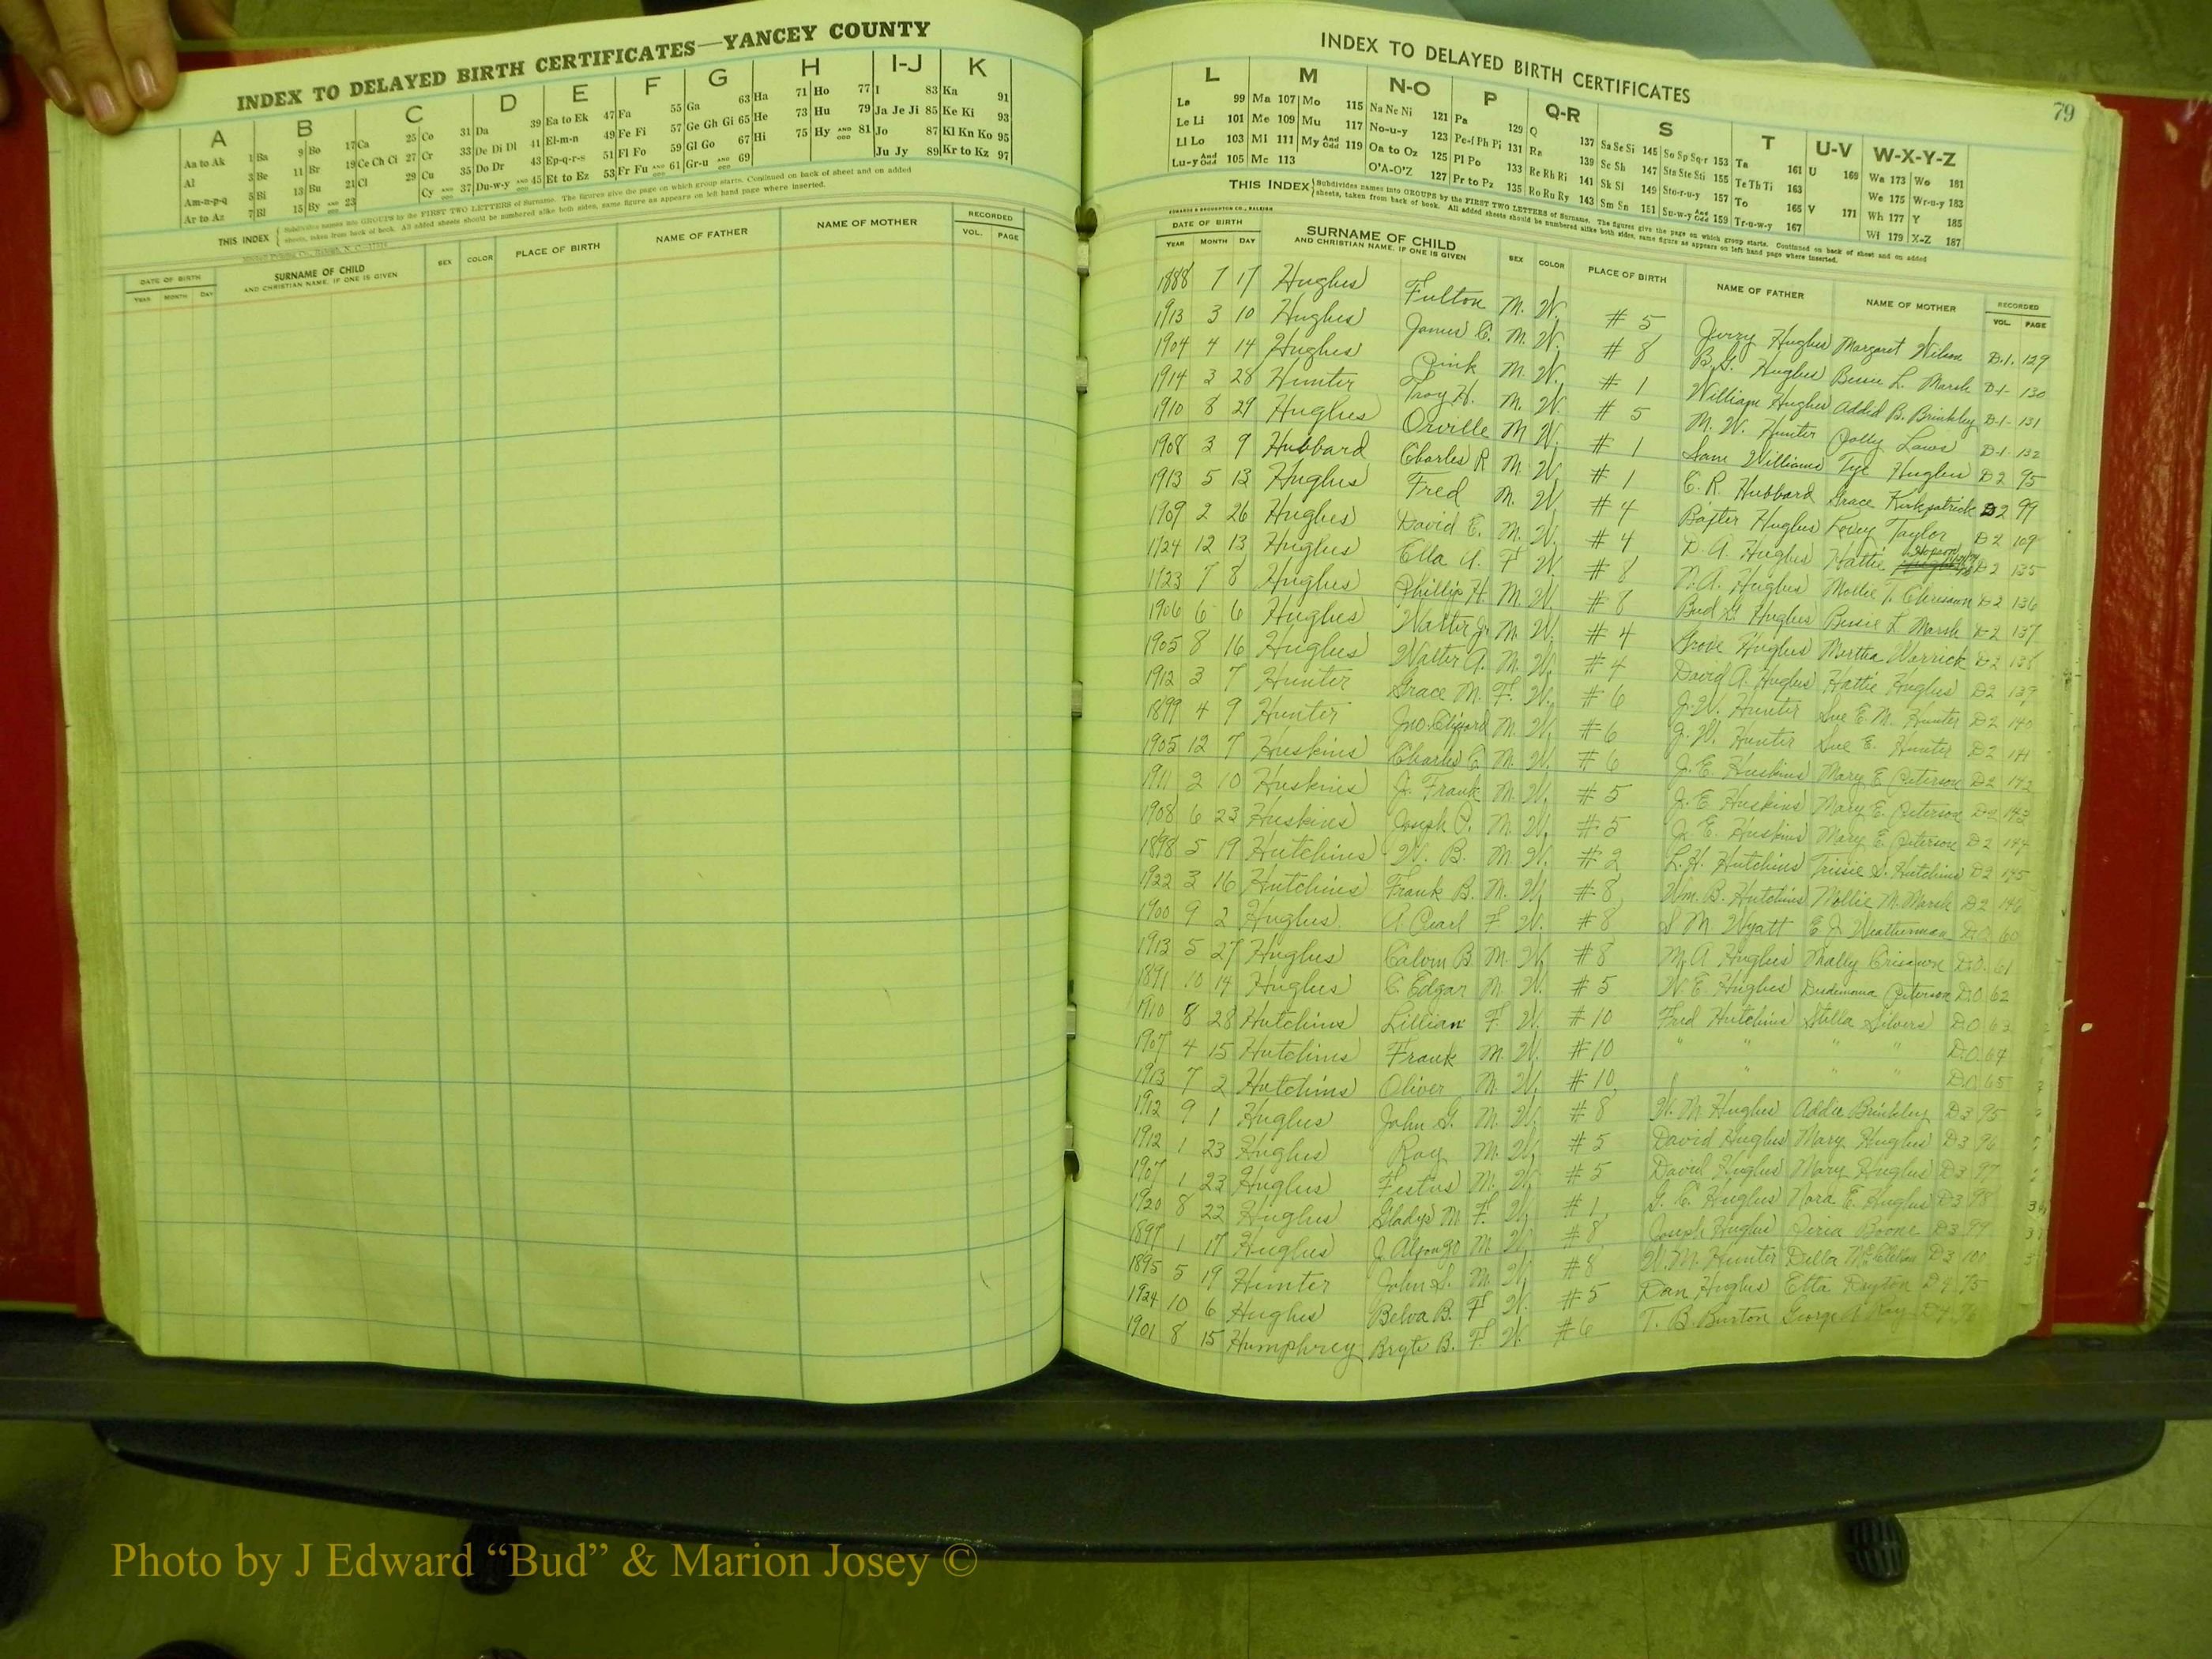 INDEX TO DELAYED BIRTH CERTIFICATES—YANCEY COUNTY
A B C D E F G H I-J K
Aa to Ak 1 Ba 9 Bo 17 Ca 25 Co 31 Da 39 Ea to Ek 47 Fa 55 Ga 63 Ha 71 Ho 77 I 83 Ka 91
Al 3 Be 11 Br 19 Ce Ch Ci 27 Cr 33 De Di Dl 41 El-m-n 49 Fe Fi 57 Ge Gh Gi 65 He 73 Hu 79 Ja Je Ji 85 Ke Ki 93
Am-n-p-q 5 Bi 13 Bu 21 Cl 29 Cu 35 Do Dr 43 Ep-q-r-s 51 Fl Fo 59 Gl Go 67 Hi 75 Hy AND ODD 81 Jo 87 Kl Kn Ko 95
Ar to Az 7 Bl 15 By AND ODD 23 Cy AND ODD 37 Du-w-y AND ODD 45 Et to Ez 53 Fr Fu AND ODD 61 Gr-u AND ODD 69 Ju Jy 89 Kr to Kz 97
THIS INDEX { Subdivides names into GROUPS by the FIRST TWO LETTERS of Surname. The figures give the page on which group starts. Continued on back of sheet and on added
sheets, taken from back of book. All added sheets should be numbered alike both sides, same figure as appears on left hand page where inserted.
DATE OF BIRTH SURNAME OF CHILD SEX COLOR PLACE OF BIRTH NAME OF FATHER NAME OF MOTHER RECORDED
YEAR MONTH DAY AND CHRISTIAN NAME, IF ONE IS GIVEN VOL. PAGE
INDEX TO DELAYED BIRTH CERTIFICATES
79
L M N-O P Q-R S T U-V W-X-Y-Z
La 99 Ma 107 Mo 115 Na Ne Ni 121 Pa 129 Q 137 Sa Se Si 145 So Sp Sq-r 153 Ta 161 U 169 Wa 173 Wo 181
Le Li 101 Me 109 Mu 117 No-u-y 123 Pe-f Ph Pi 131 Ra 139 Sc Sh 147 Sta Ste Sti 155 Te Th Ti 163 We 175 Wr-u-y 183
Ll Lo 103 Mi 111 My And Odd 119 Oa to Oz 125 Pl Po 133 Re Rh Ri 141 Sk Sl 149 Sto-r-u-y 157 To 165 V 171 Wh 177 Y 185
Lu-y And Odd 105 Mc 113 O'A-O'Z 127 Pr to Pz 135 Ro Ru Ry 143 Sm Sn 151 Su-w-y And Odd 159 Tr-u-w-y 167 Wi 179 X-Z 187
THIS INDEX { Subdivides names into GROUPS by the FIRST TWO LETTERS of Surname. The figures give the page on which group starts. Continued on back of sheet and on added
sheets, taken from back of book. All added sheets should be numbered alike both sides, same figure as appears on left hand page where inserted.
EDWARDS & BROUGHTON CO., RALEIGH
DATE OF BIRTH SURNAME OF CHILD SEX COLOR PLACE OF BIRTH NAME OF FATHER NAME OF MOTHER RECORDED
YEAR MONTH DAY AND CHRISTIAN NAME, IF ONE IS GIVEN VOL. PAGE
1888 7 17 Hughes Fulton M. W. # 5 Jerry Hughes Margaret Wilson D-1- 129
1913 3 10 Hughes James C. M. W. # 8 B. G. Hughes Bessie L. Marsh D-1- 130
1904 4 14 Hughes Pink M. W. # 1 William Hughes Added B. Brinkley D-1- 131
1914 3 28 Hunter Troy H. M. W. # 5 M. W. Hunter Polly Laws D-1- 132
1910 8 29 Hughes Orville M W. # 1 Sam Williams Tye Hughes D2 95
1908 3 9 Hubbard Charles R M. W. # 1 C. R. Hubbard Grace Kirkpatrick D2 99
1913 5 13 Hughes Fred M. W # 4 Baxter Hughes Lovey Taylor D2 109
1909 2 26 Hughes David E. M. W. # 4 D. A. Hughes Hattie D2 135
1924 12 13 Hughes Ella A. F W. # 8 N. A. Hughes Mollie T. Chrisawn D2 136
1923 7 8 Hughes Phillip H. M. W. # 8 Bud G. Hughes Bessie L Marsh D2 137
1906 6 6 Hughes Walter Jr. M. W. # 4 Grove Hughes Martha Warrick D2 138
1905 8 16 Hughes Walter A. M. W. # 4 David A. Hughes Hattie Hughes D2 139
1912 3 7 Hunter Grace M. F. W. # 6 J. W. Hunter Sue E. M. Hunter D2 140
1899 4 9 Hunter Jno. M. W. # 6 J. W. Hunter Sue E. Hunter D2 141
1905 12 7 Huskins Charles C. M. W. # 6 J. E. Huskins Mary E. Peterson D2 142
1911 2 10 Huskins J. Frank M. W. # 5 J. E. Huskins Mary E. Peterson D2 143
1908 6 23 Huskins Joseph P. M. W. # 5 J. E. Huskins Mary E. Peterson D2 144
1898 5 19 Hutchins W. B. M W. # 2 L. H. Hutchins S. Hutchins D2 145
1922 3 16 Hutchins Frank B. M. W. # 8 Wm. B. Hutchins Mollie M. Marsh D2 146
1900 9 2 Hughes A. Pearl F W. # 8 S M. Wyatt E J Weatherman D.O. 60
1913 5 27 Hughes Calvin B. M. W. # 8 M. A Hughes Mally Crisawn D.O. 61
1891 10 14 Hughes C. Edgar M. W. # 5 W E Hughes Desdemona Peterson D.O. 62
1910 8 28 Hutchins Lillian F. W. # 10 Fred Hutchins Stella Silvers D.O. 63
1907 4 15 Hutchins Frank M. W. # 10 " " " " D.O. 64
1913 7 2 Hutchins Oliver M. W. # 10 " " " D.O. 65
1912 9 1 Hughes John G. M. W. # 8 W. M Hughes Addie Brinkley D3 95
1912 1 23 Hughes Roy M. W. # 5 David Hughes Mary Hughes D3 96
1907 1 23 Hughes Festus M. W. # 5 David Hughes Mary Hughes D3 97
1920 8 22 Hughes Gladys M F. W. # 1 G. C. Hughes Nora E. Hughes D3 98
1897 1 17 Hughes J. Alfonzo M. W. # 8 Joseph Hughes Boone D3 99
1895 5 19 Hunter John S. M. W. # 8 W. M. Hunter Della McClellan D3 100
1924 10 6 Hughes Belva B. F W. # 5 Dan Hughes Etta Dayton D4 75
1901 8 15 Humphrey Bryte B. F. W. # 6 T. B. Burton George A Ray D4 76
Photo by J Edward “Bud” & Marion Josey ©